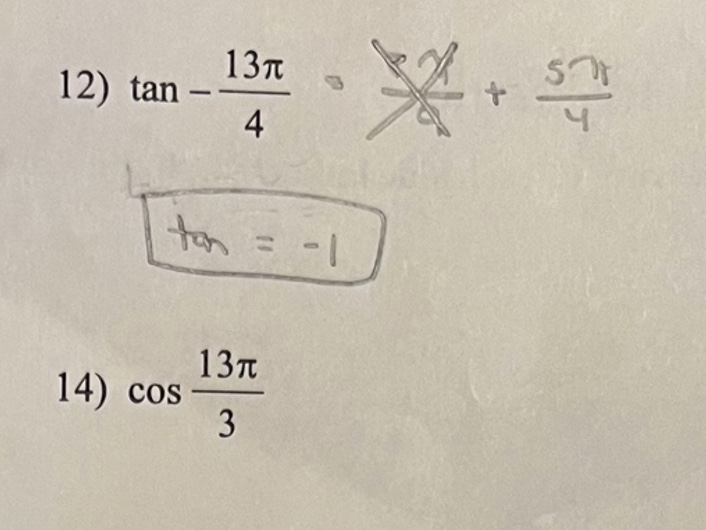 12) tan − 13π/4 = + 5π/4
tan = -1
14) cos 13π/3